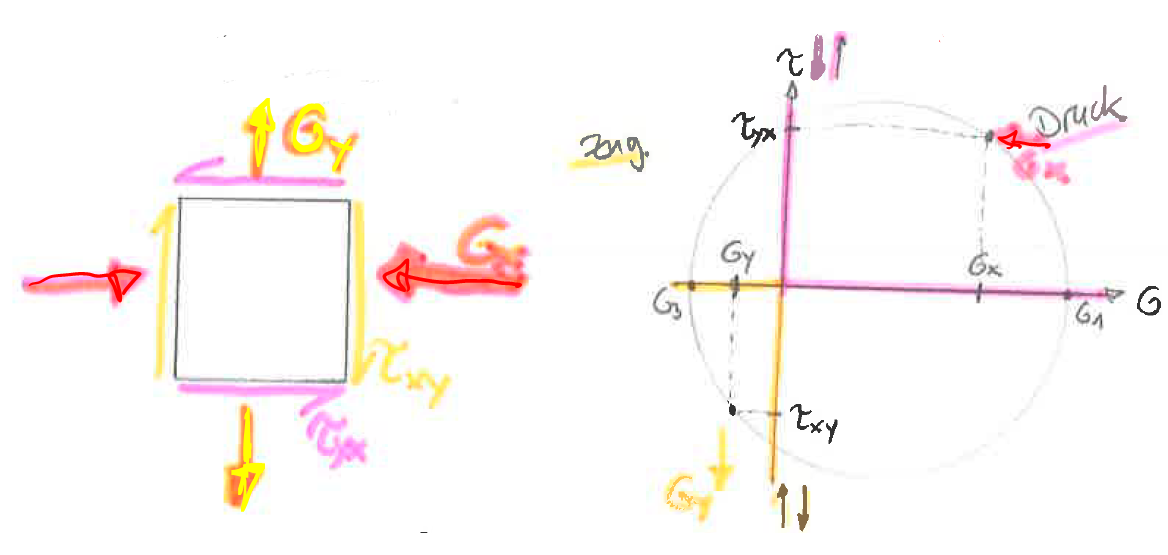 σy
σx
τxy
τyx
τ
τyx
Druck
σx
Zug.
σy
σx
σ3
σ1
σ
τxy
σy